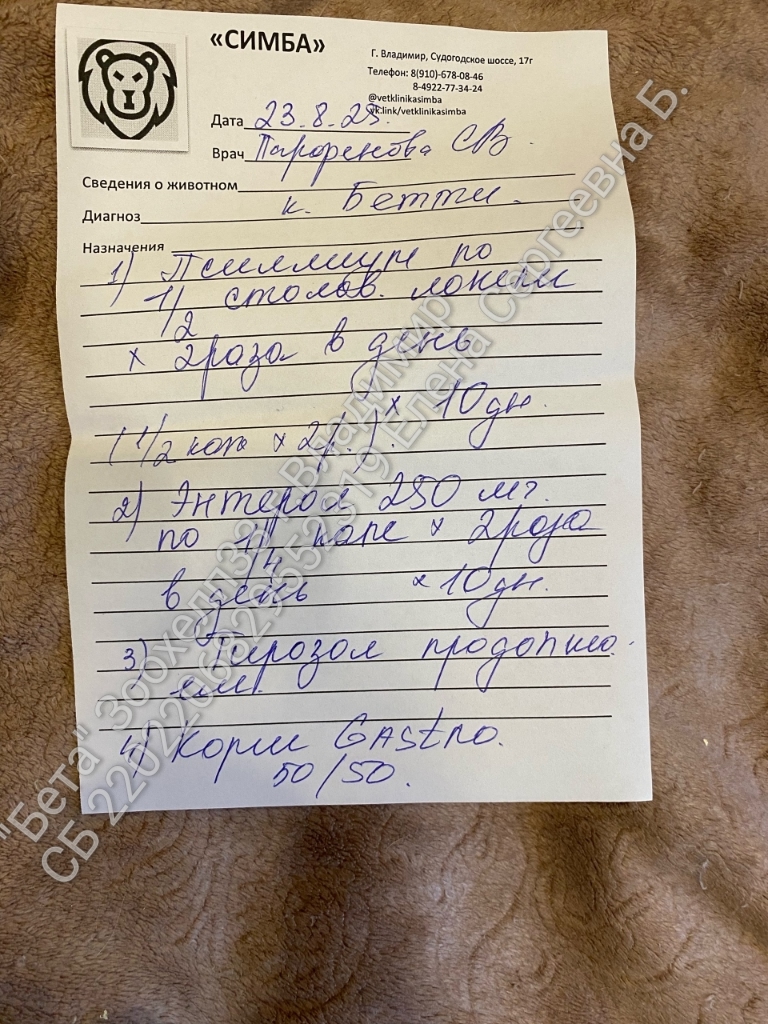 «СИМБА»
Г. Владимир, Судогодское шоссе, 17г
Телефон: 8(910)-678-08-46
8-4922-77-34-24
@vetklinikasimba
vk.link/vetklinikasimba
Дата 23.8.25.
Врач Парфенова СВ.
Сведения о животном
к. Бетти.
Диагноз
Назначения
1) Псиллиум по
1/2 столов. ложки
х 2 раза в день
(1/2 х 2р.) х 10 дн.
2) Энтерол 250 мг.
по 1/4 капс х 2 раза
в день х 10 дн.
3) Тирозол продолжа.
ем.
4) Корм Gastro.
50/50.
"Бета" Зоохелп33 г. Владимир
СБ Елена Сергеевна Б.